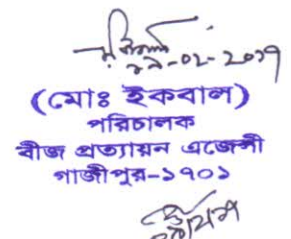 ১৭-০২-২০১৭
(মোঃ ইকবাল)
পরিচালক
বীজ প্রত্যায়ন এজেন্সী
গাজীপুর-১৭০১